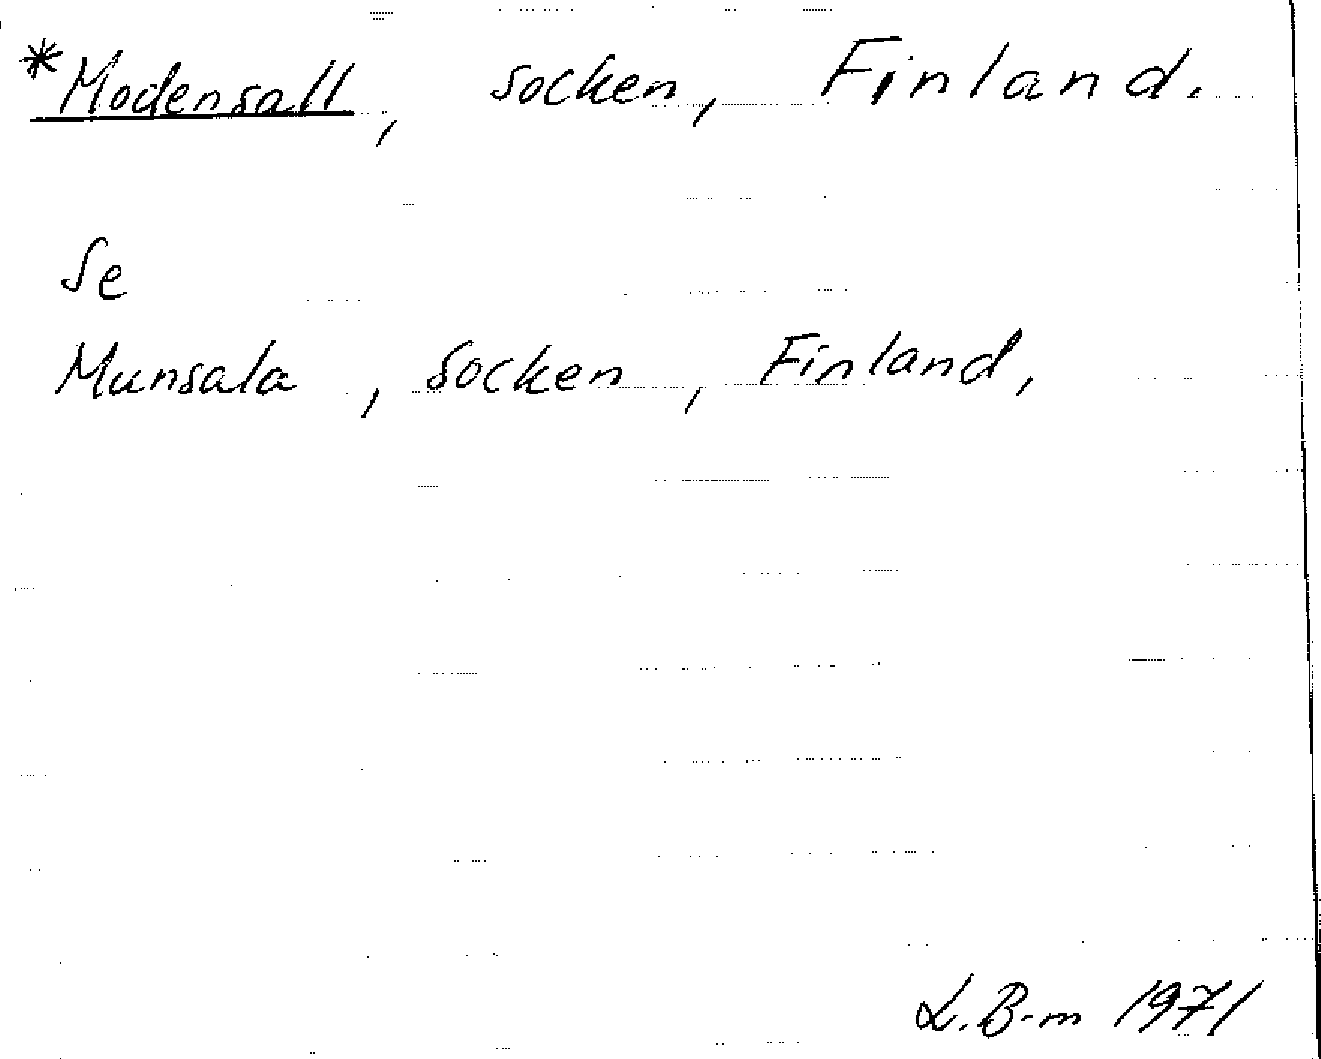 *Modensall, socken, Finland.
Se
Munsala, socken, Finland,
L.B-m 1971